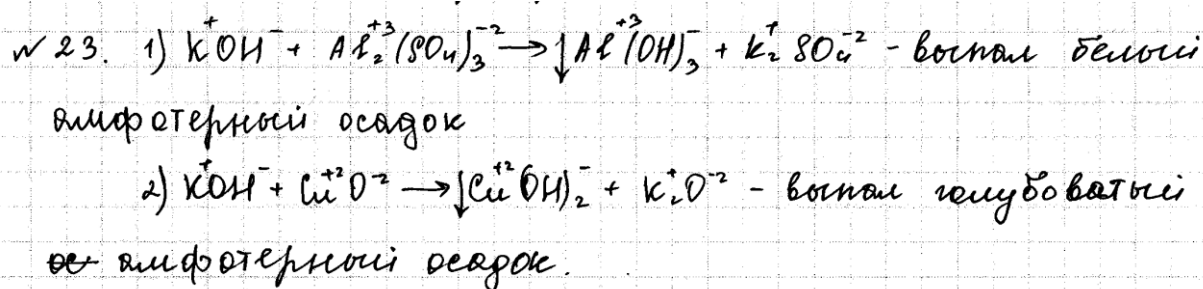 №23. 1) K⁺OH⁻ + Al₂⁺³(SO₄)₃⁻² → ↓Al⁺³(OH)₃⁻ + K₂⁺SO₄⁻² - выпал белый
амфотерный осадок
2) K⁺OH⁻ + Cu⁺²O⁻² → ↓Cu⁺²(OH)₂⁻ + K₂⁺O⁻² - выпал голубоватый
ос амфотерный осадок.